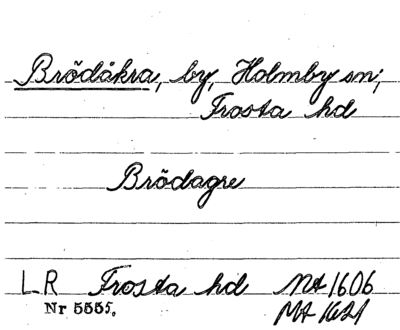 Brödåkra, by, Holmby sn,
Frosta hd
Brödagre
LR Frosta hd MA 1606
Nr 5555. MA 1621